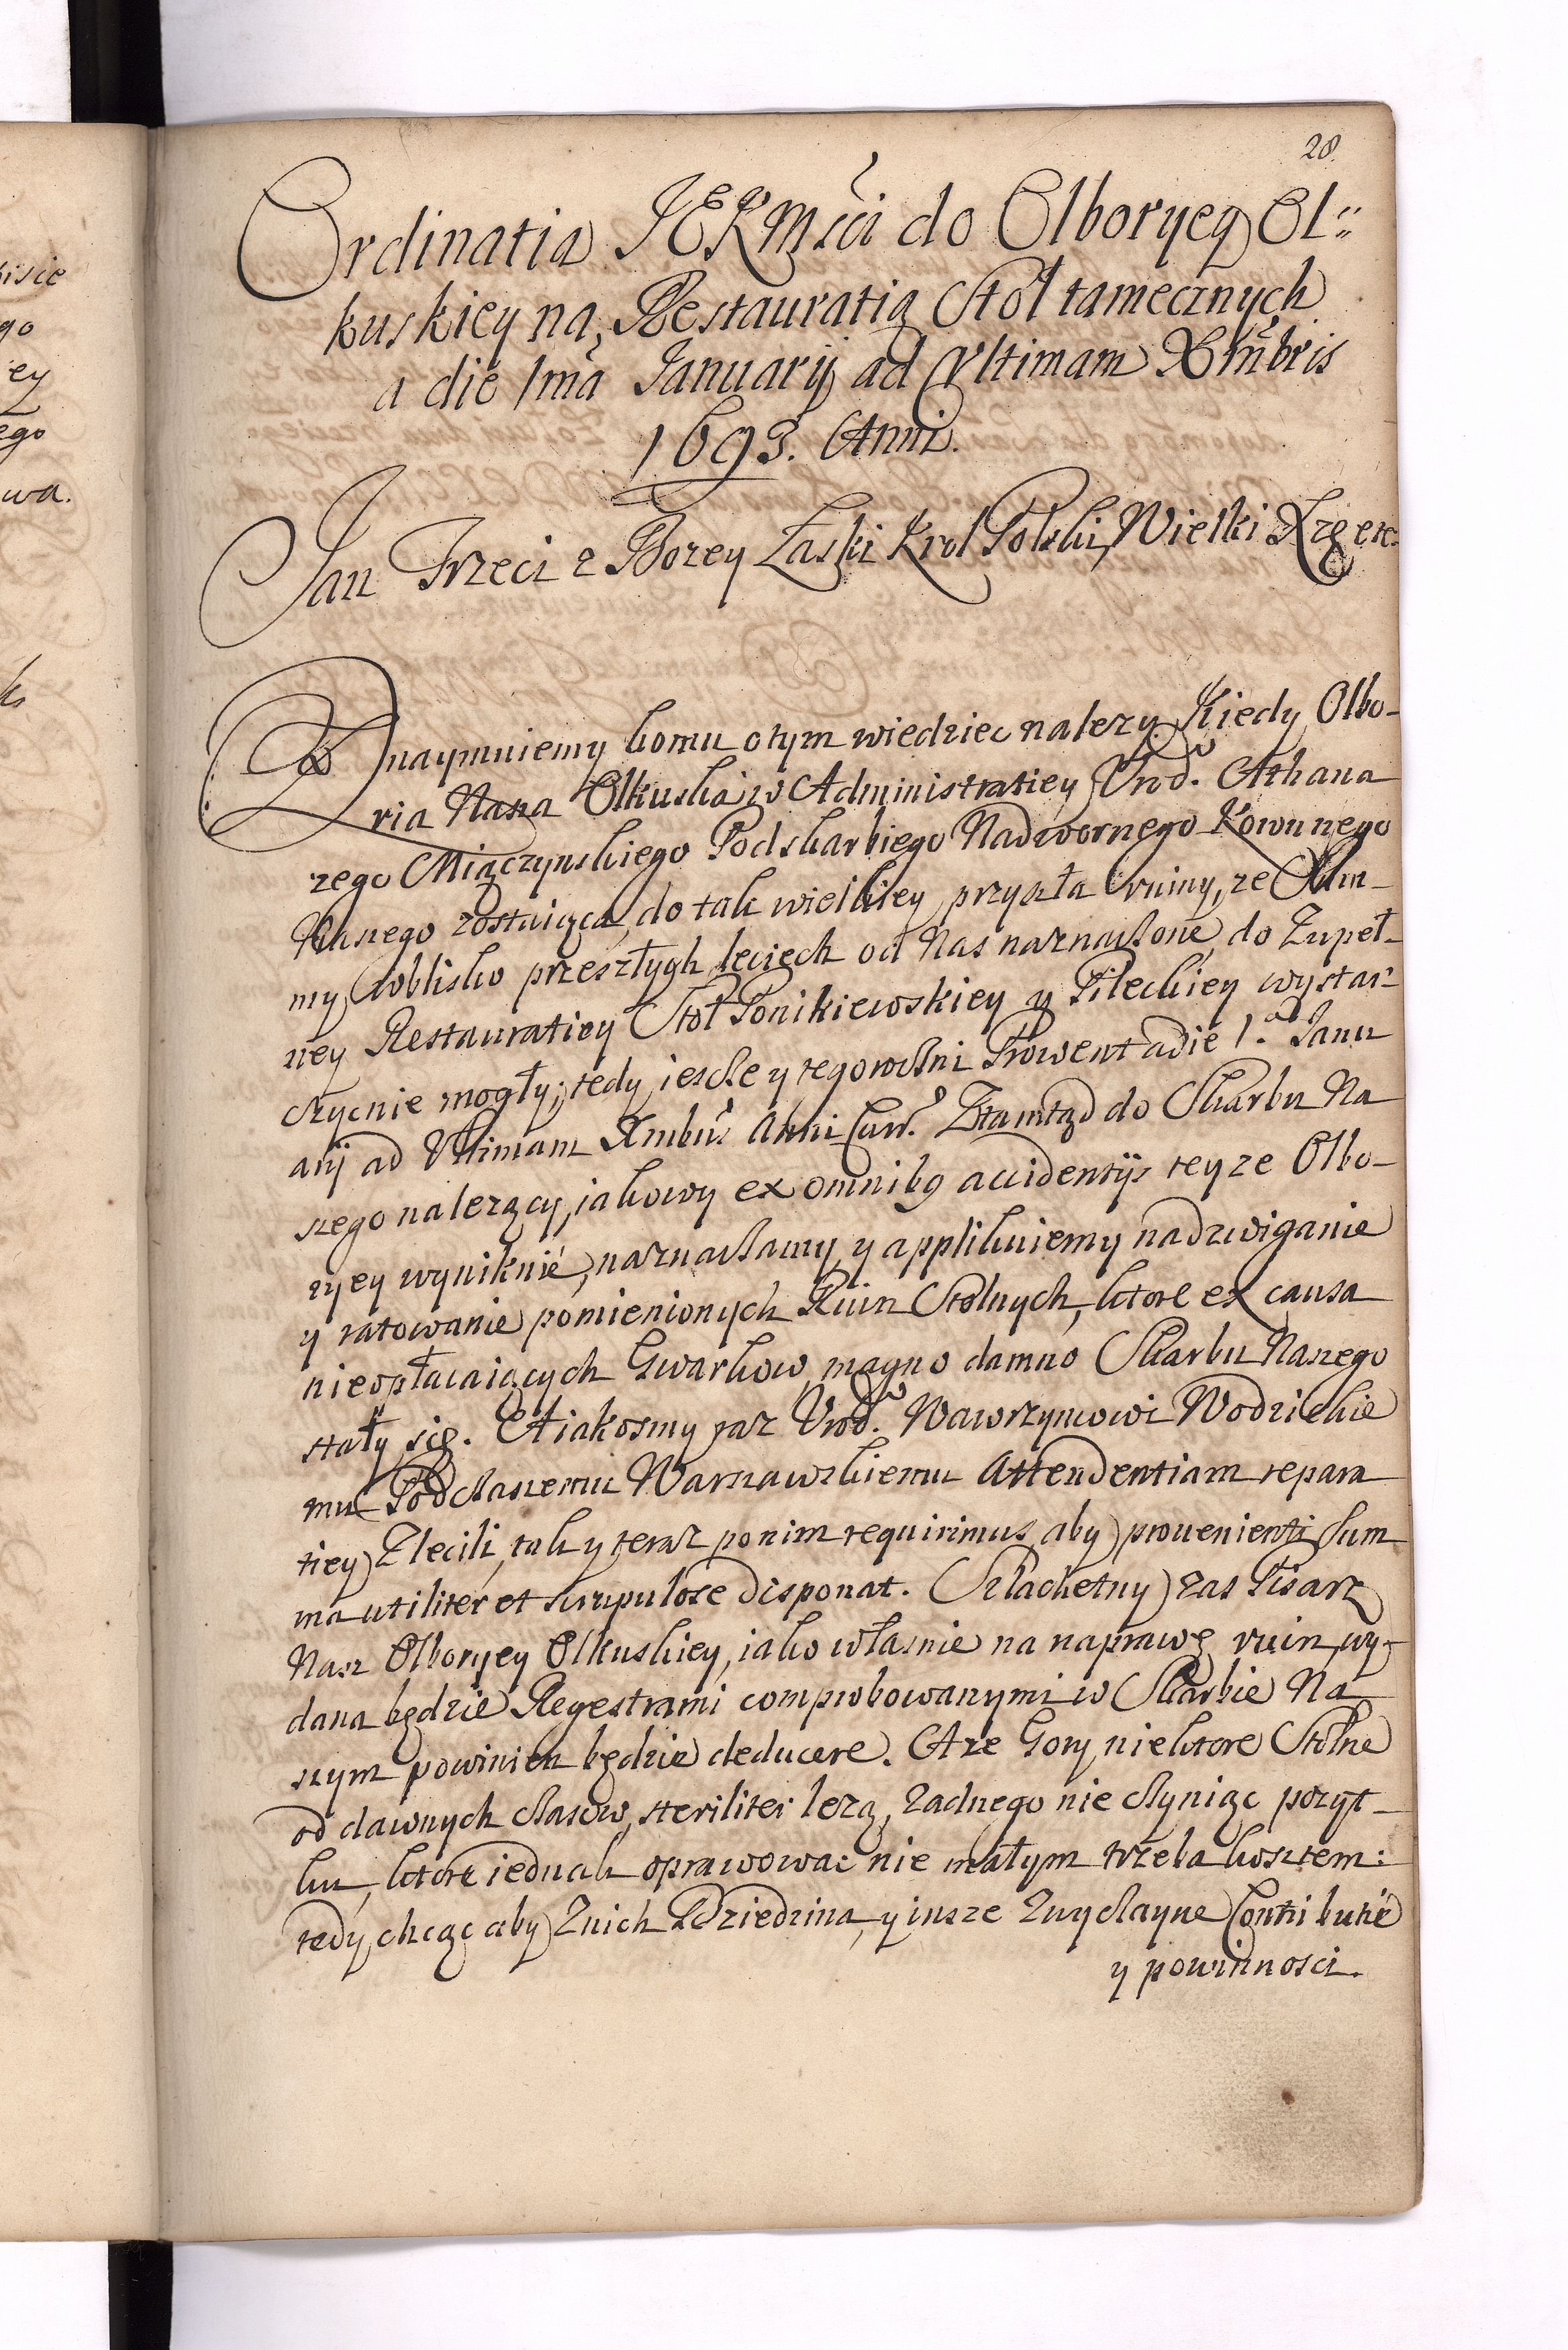 28.
Ordinatia JEKMści do Olboryeÿ Ol:
kuskiey na Restauratią Stol tamecznych
a die 1mâ Januarij ad Vltimam Xbris
1693. Anni.
Jan Trzeci z Bozey Łaski Krol Polski, Wielki Xzę etc.
Znaymuiemy komu o tym wiedziec nalezy. Kiedy Olbo-
ria Nasza Olkuska w Administratiey Urod. Athana
zego Miączynskiego Podskarbiego Nadwornego Koronnego
Naszego zostaiąca, do tak wielkiey przyszła ruiny, ze Sum-
my blisko przeszłych leciech od Nas naznaczone, do Zupeł-
ney Restauratiey Stol Ponikiewskiey y Pileckiey wystar-
czyc nie mogły; tedy iescze y tegoroczni Prowent a die 1.a Janu
arij ad Vltimam Xmbris Anni Curr. Ztamtąd do Skarbu Na
szego nalezący, iakowy ex omnibq accidentijs teyze Olbo-
ryey wyniknie, naznaczamy y applikuiemy na dzwiganie
y ratowanie pomienionych Ruin Stolnych, ktore ex causa
nieopłacaiących Gwarkow magno damno Skarbu Naszego
stały się. A iakosmy raz Urod. Wawrzyncowi Wodzickie
mu Podczaszemu Warszawskiemu Attendentiam repara
tiey Zlecili, tak y teraz po nim requirimus, aby provenienti sum
ma utiliter et scrupulose disponat. Szlachetny zas Pisarz
Nasz Olboryey Olkuskiey, iako własnie na naprawę ruin wy-
dana będzie Regestrami comprobowanymi w Skarbie Na
szym powinien będzie deducere. A ze Gory niektore Stolne
od dawnych czasow, steriliter lezą, zadnego nie czyniąc pozyt-
ku, ktore iednak oprawowac nie małym trzeba kosztem:
tedy chcąc aby Znich Dziedzina, y insze Zwyczayne Contributie
y powinnosci.